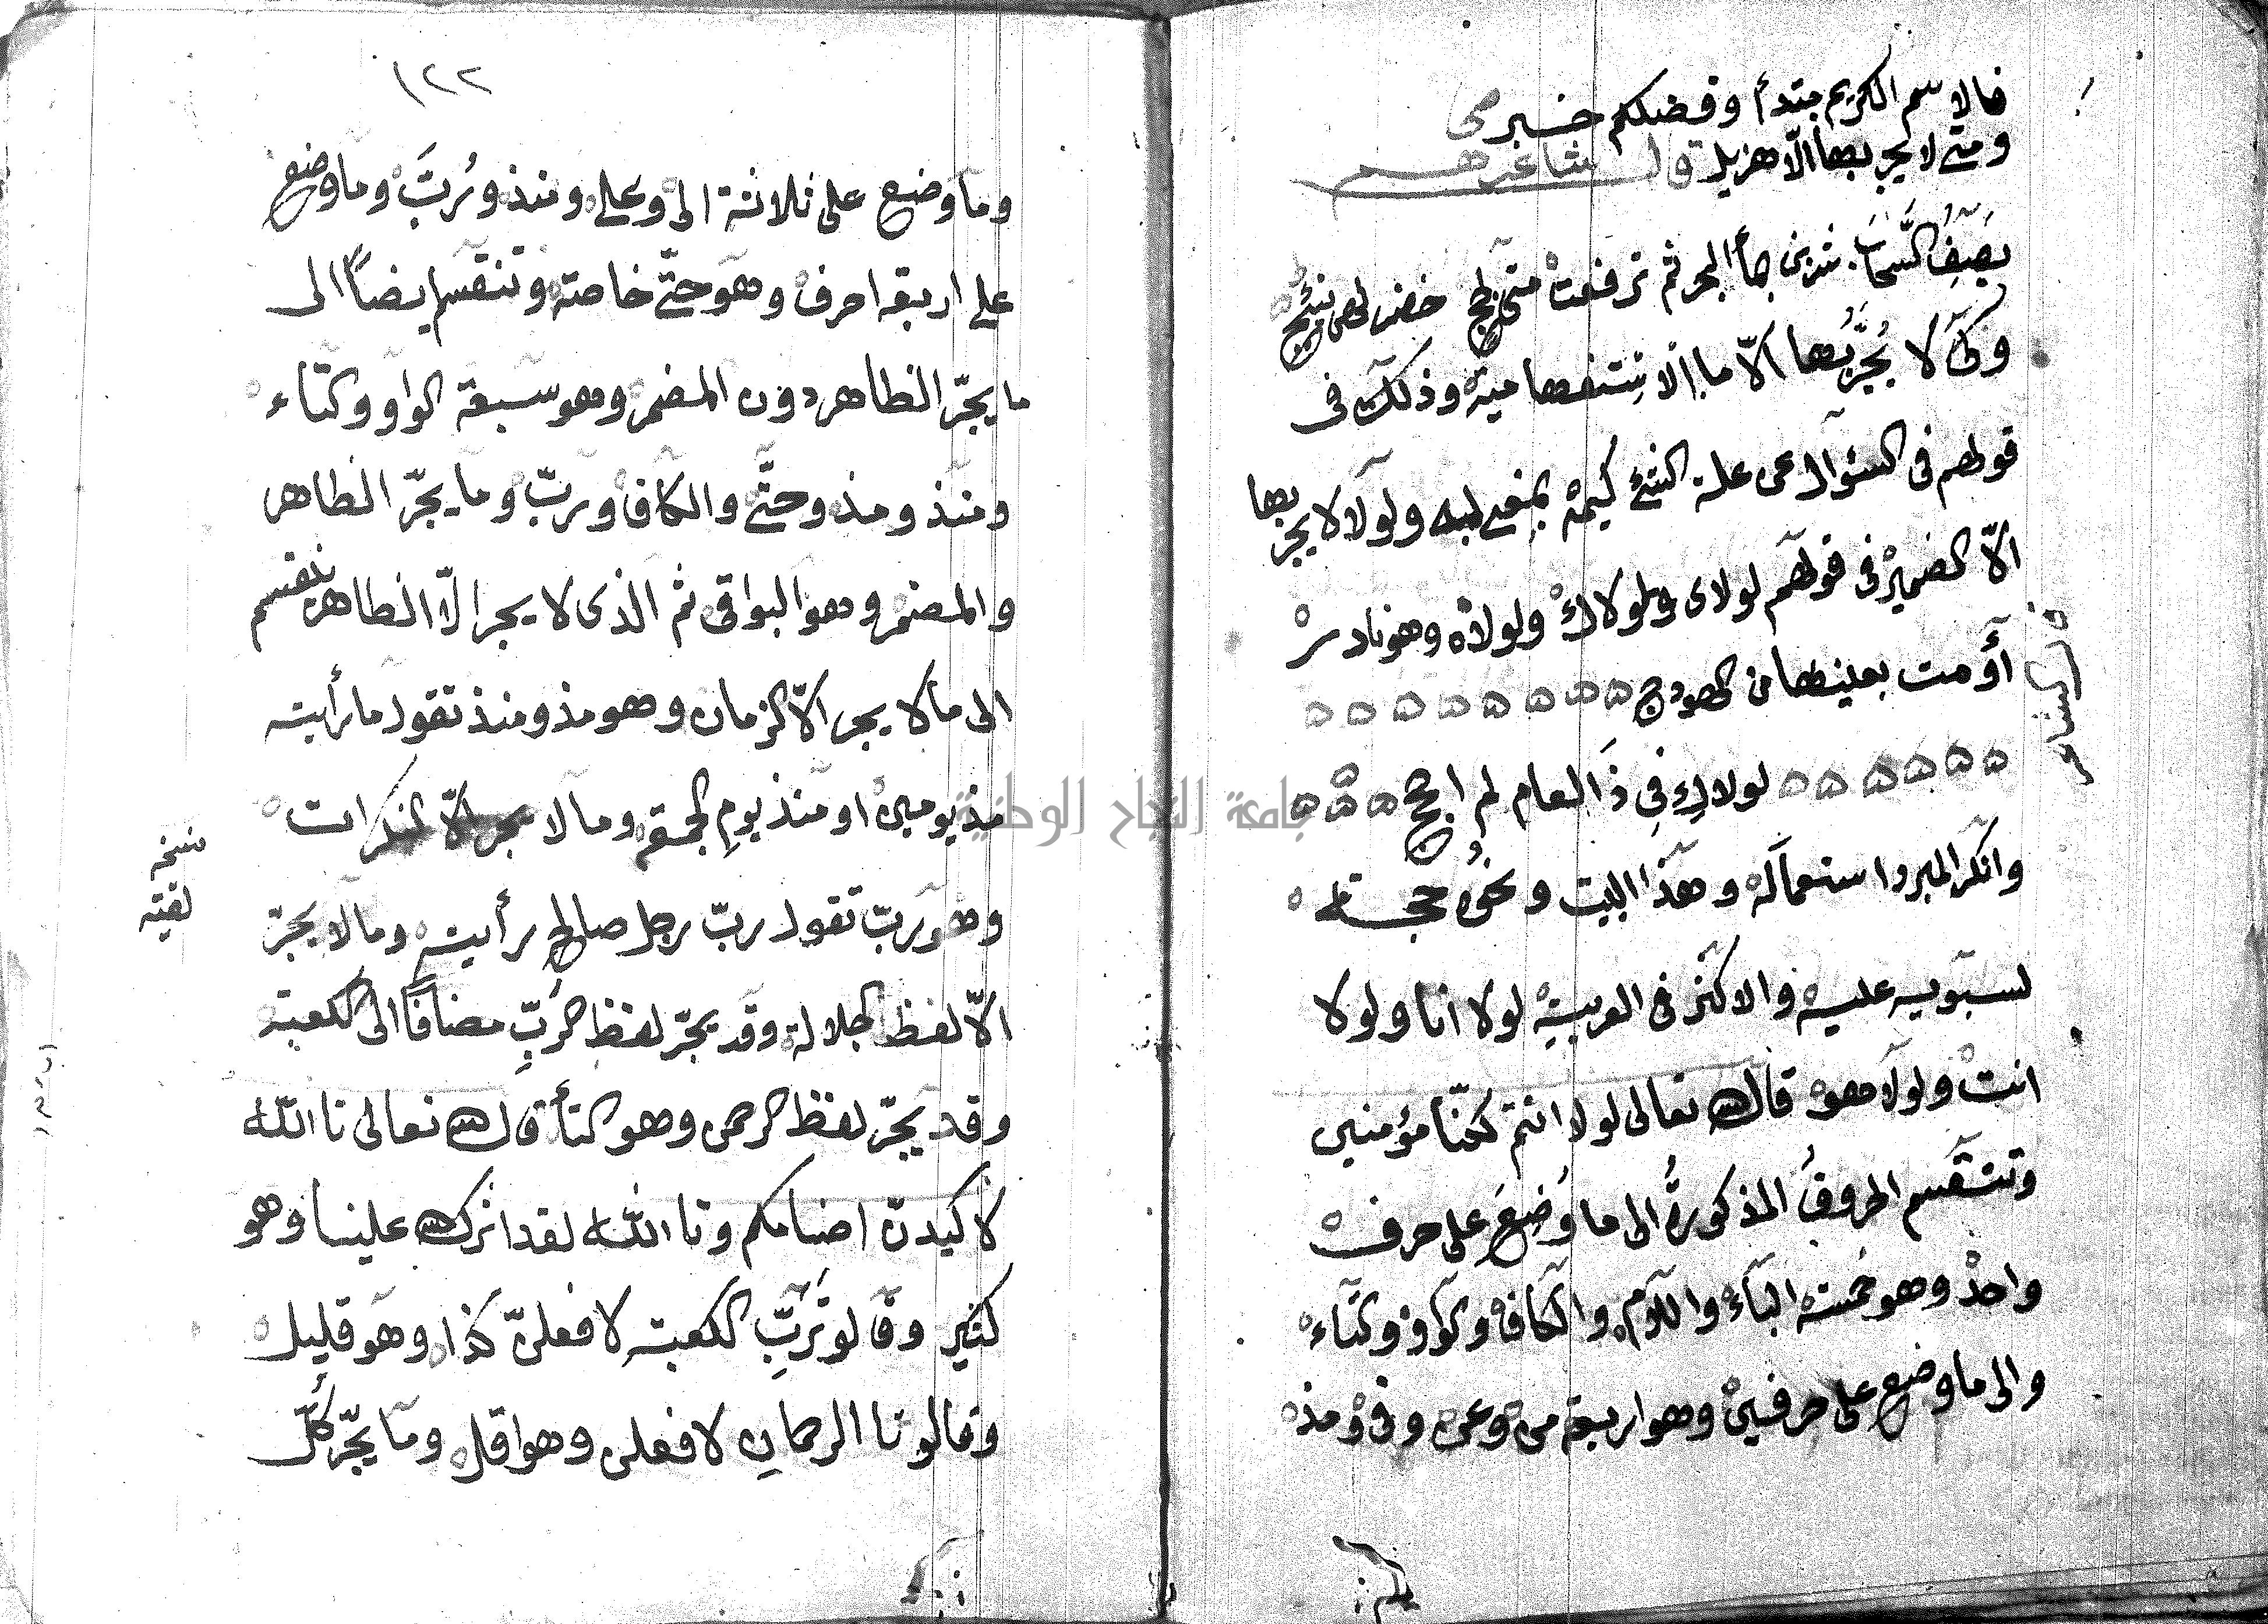 فالاسم الكريم مبتدأ وفضلكم خبر
ومتى لا يجر بها الا هزيل قال شاعرهم
يصِفُ السَّحَاب شربن بمأ البحر ثم ترفعت متى لجج خضر لهن نئيج
وكى لا يُجَرُّ بها الّا ما الاستفهامية وذلك فى
قولهم فى السؤال عن علة الشئ كيمه بمعنى لمه ولولا لا يجر بها
الّا الضمير فى قولهم لولاى ولولاك ولولاه وهو نادر
قال الشاعر
أومت بعينيها من الهودج
لولاكِ فِى ذَا العام لم احجج
وانكر المبرد استعماله وهذا البيت ونحوه حجة
لسبويه عليه والاكثر فى العربية لولا انا ولولا
انت ولولا هو قال الله تعالى لولا انتم لكنّا مؤمنين
وتنقسم الحروفُ المذكورةُ الى ما وُضِعَ على حرف
واحد وهو خمسة البآء واللام والكاف والواو والتاء
والى ما وضع على حرفين وهو اربعة من وعن وفى ومذ
١٢٢
وما وضع على ثلاثة الى وعلى ومنذ ورُبَّ وما وضع
على اربعة احرف وهو حتّى خاصة وتنقسم ايضاً الى
ما يجرّ الظاهر دون المضمر وهو سبعة الواو والتاء
ومنذ ومذ وحتَّى والكاف وربّ وما يجرّ الظاهر
والمضمر وهو البواقى ثم الذى لا يجر الّا الظاهر ينقسم
الى ما لا يجر الّا الزمان وهو مذ ومنذ تقول ما رأيته
مذ يومين او منذ يومِ الجمعة وما لا يجر الّا النكرات
وهو ربّ تقول ربّ رجل صالح رأيته وما لا يجرّ
نسخه
لقيته
الّا لفظ الجلالة وقد يجرّ لفظ الرَبِّ مضافًا الى الكعبة
وقد يجرّ لفظ الرحمن وهو التأ قال الله تعالى تا الله
لاكيدن اصنامكم وتا الله لقد اثرك الله علينا وهو
كثير وقالو تَرَبِّ الكعبة لافعلنّ كذا وهو قليل
وقالو تا الرحمان لافعلن وهو اقل وما يجرّ كُلَّ